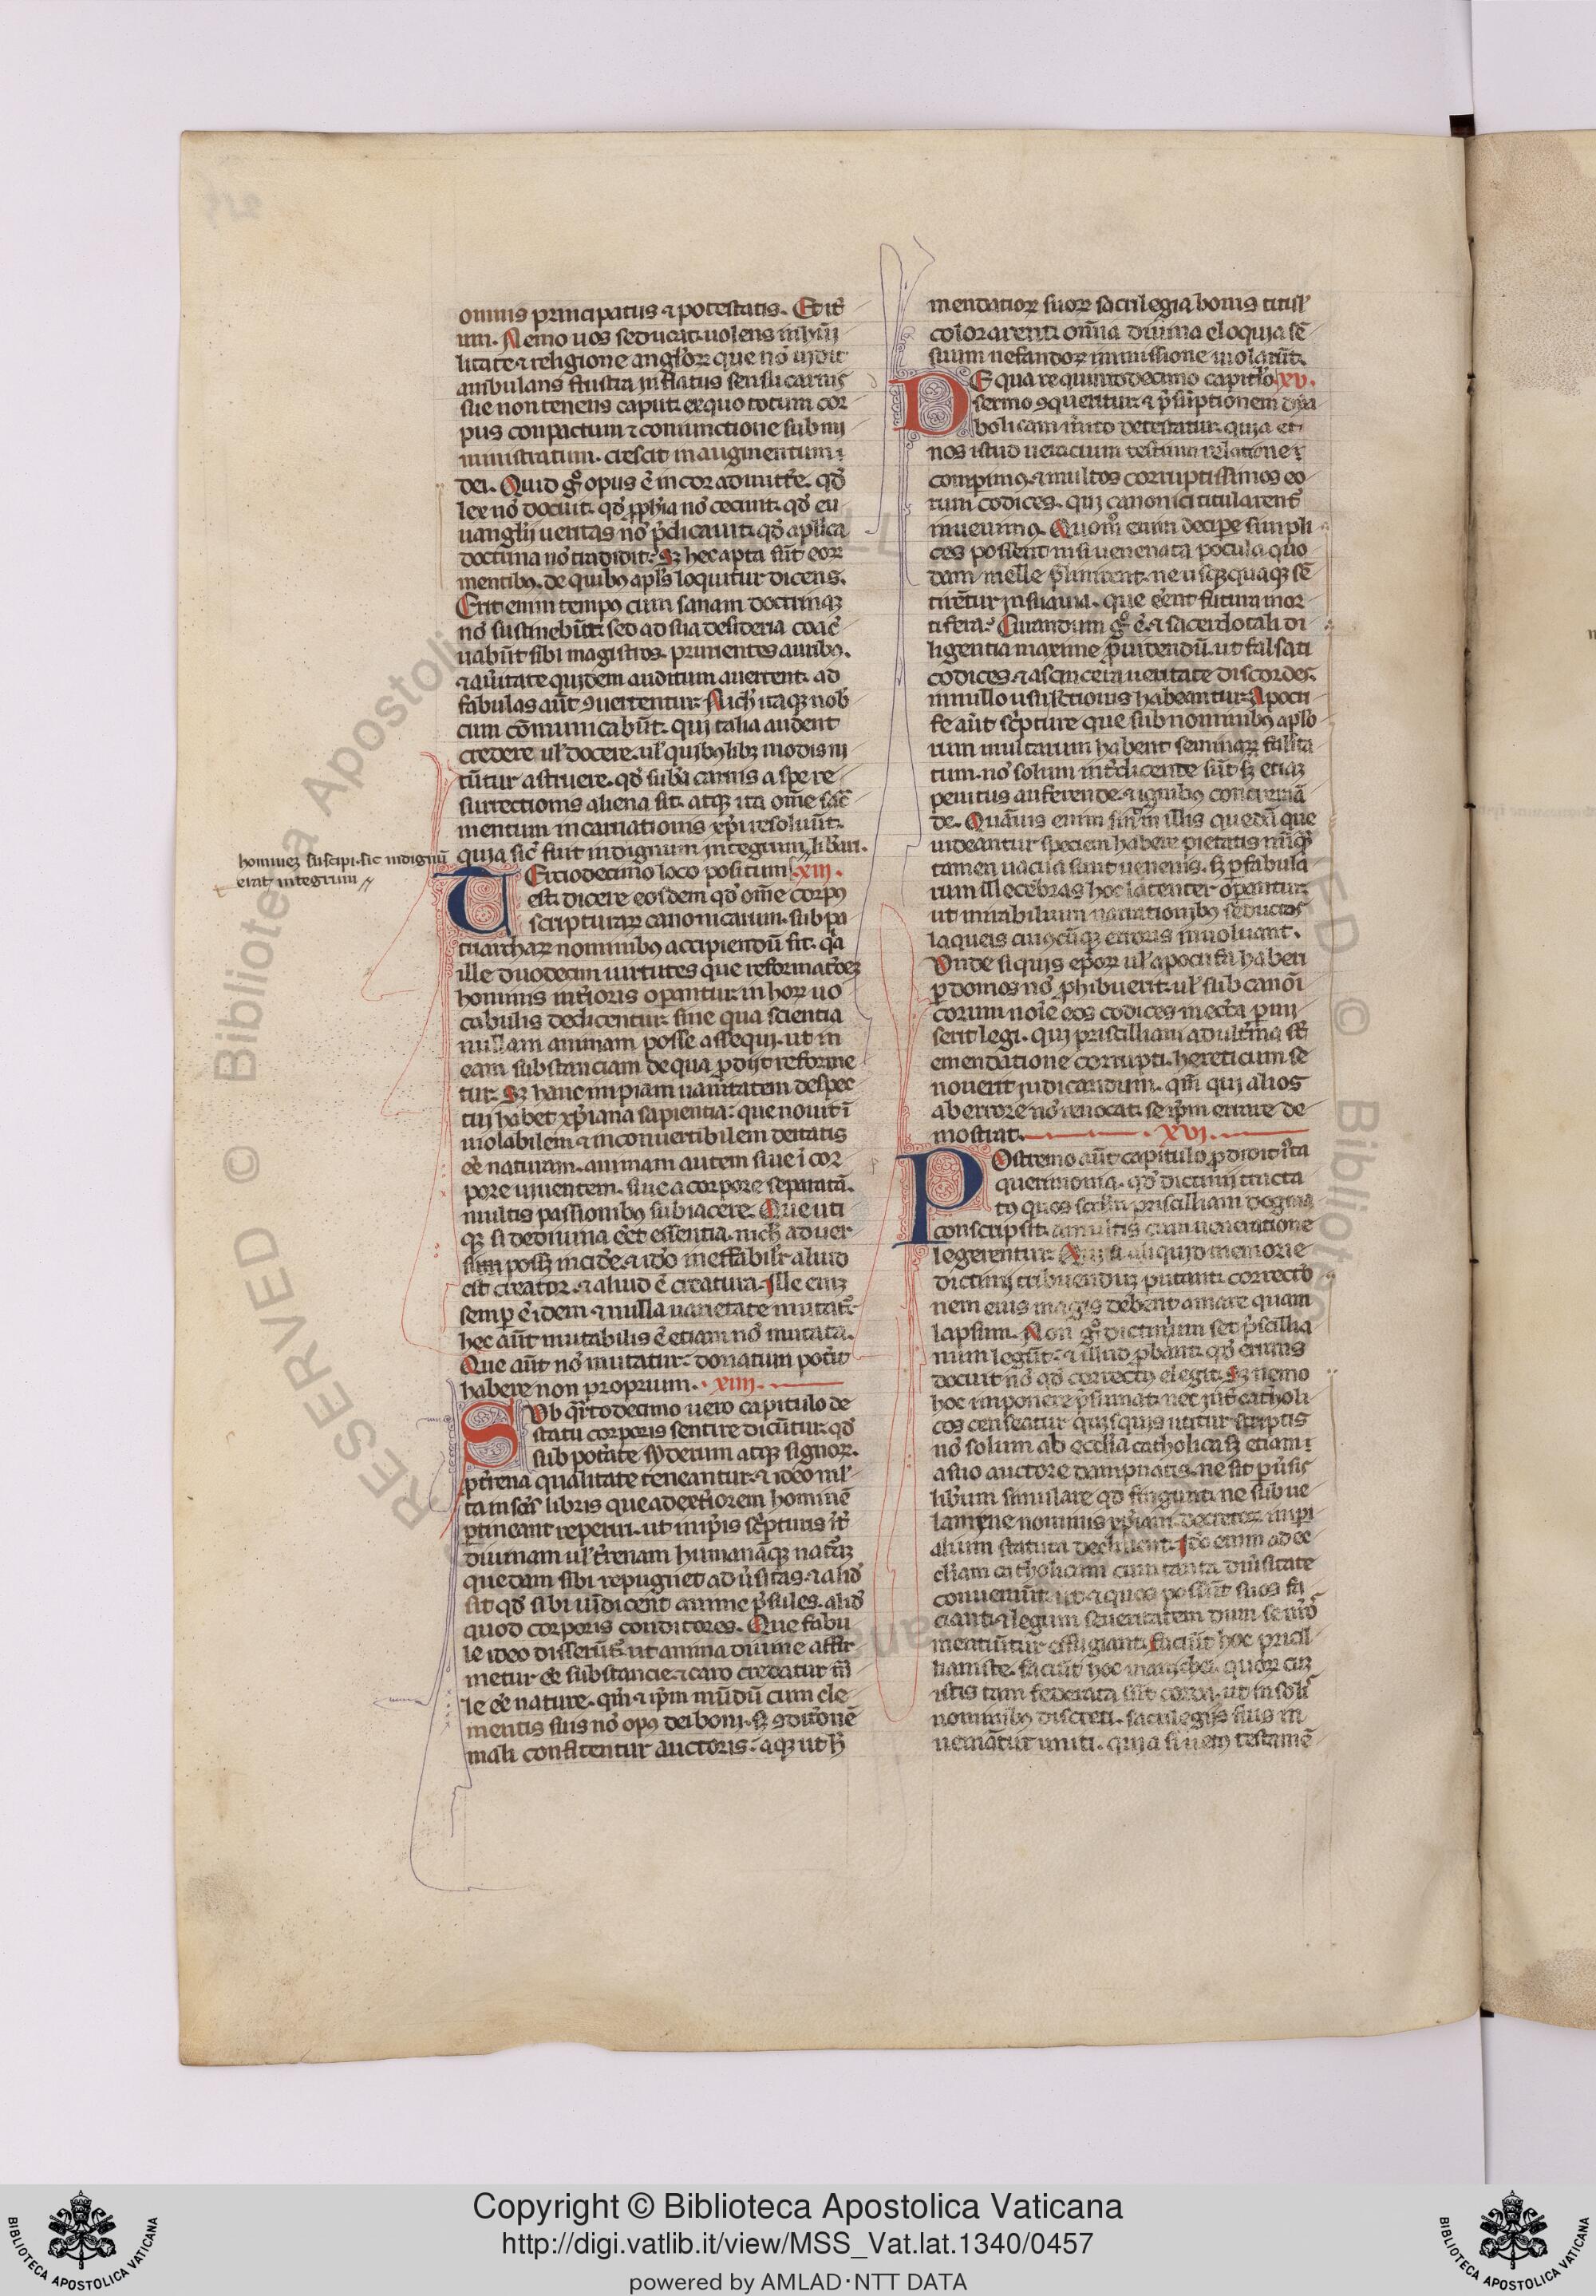 omnis principatus ⁊ potestatis. Et it̾
um. Nemo uos seducat uolens in hūi
litate ⁊ religione angl̓oꝝ que nō uidit
ambulans frustra inflatus sensu carnis
sue non tenens caput. ex quo totum cor
pus conpactum ⁊ coniunctione submi
nistratum. crescit in augmentum
dei. Quid gͦ opus ē in cor admitt̾e. qd̓
lex nō docuit. qd̓ ꝓph̓ia nō cecinit. qd̓ eu
uangelij ueritas nō p̄dicauit. qd̓ apl̓ica
doctrina nō tradidit. Sꝫ hec apta sūt eoꝝ
mentibꝰ. de quibꝰ apl̓s loquitur dicens.
Erit enim tempꝰ cum sanam doctrinaꝫ
nō sustinebūt. sed ad sua desideria coac̄
uabūt sibi magistros. prurientes auribꝰ.
⁊ a ūitate quidem auditum auertent. ad
fabulas aūt ꝯuertentur. Nich̓ itaqꝫ nob̓
cum cōmunicabūt. qui talia audent
credere ul̓ docere. ul̓ quibꝰlibꝫ modis ni
tūtur astruere. qd̓ sub̄a carnis a spe re
surrectionis aliena sit. atqꝫ ita om̄e sac̄
mentum incarnationis xp̄i resoluūt.
quia sic̄ fuit indignum integrum lib̓ari.
homineꝫ suscipi. sic indignū
erat integrum
Terciodecimo loco positum .xiii.
est. dicere eosdem qd̓ om̄e corpꝰ
scripturaꝝ canonicarum. sub pa
triarchaꝝ nominibꝰ accipiendū sit. q̄a
ille duodecim uirtutes que reformat̓oeꝫ
hominis int̓ioris op̄antur. in hoꝝ uo
cabulis dedicentur. sine qua scientia
nullam animam posse assequi. ut in
eam substanciam de qua ꝓdijt reforme
tur. Sꝫ hanc impiam uanitatem despec
tui habet xp̄iana sapientia. que nouit ī
uiolabilem ⁊ inconuertibilem deitatis
eē naturam. animam autem siue ī cor
pore uiuentem. siue a corpore separatā.
multis passionibꝰ subiacere. Que uti
qꝫ si de diuina eēt essentia. nich̓ aduer
sum possꝫ incid̾e. ⁊ iđo ineffabilit̾ aliud
est creator. ⁊ aliud ē creatura. Ille enīꝫ
semp̄ ē idem ⁊ nulla uarietate mutat̾.
hec aūt mutabilis ē etiam nō mutata.
Que aūt nō mutatur. donatum pot̾it
habere non proprium. .xiiii.
Sub q̄rtodecimo uero capitulo de
statu corporis sentire dicūtur. qd̓
sub pot̄ate syderum atqꝫ signoꝝ.
ꝓ t̾rena qualitate teneantur. ⁊ ideo ml̓
ta in sc̄is libris que ad ext̾iorem hominē
ꝑtineant reperiri. ut in ip̄is sc̓pturis int̾
diuinam ul̓ t̾renam humanāqꝫ nat̾aꝫ
quedam sibi repugnet aduersitas. ⁊ aliđ
sit qd̓ sibi uēdicent anime p̄sules. aliđ
quod corporis conditores. Que fabu
le ideo disserūt̾. ut anima diuine affir
metur eē substancie. ⁊ caro credatur m̄
le eē nature. qm̄ ⁊ ip̄m mūdū cum ele
mentis suis nō opꝰ dei boni. sꝫ ꝯdit̾onē
mali confitentur auctoris. atqꝫ ut h̓
mendatioꝝ suoꝝ sacrilegia bonis titul̓
colorarent. om̄ia diuina eloquia sē
suum nefandoꝝ immissione uiolarūt.
De qua re quintodecimo capitl̓o .xv.
sermo ꝯqueritur. ⁊ p̄sūptionem dya
bolicam m̄ito detestatur. quia et
nos istud ueracium testium relatione
comperimꝰ. ⁊ multos corruptissimos eo
rum codices. qui canonici titularent̾
inuenimꝰ. Quom̄ enim decipe simpli
ces possent nisi uenenata pocula quo
dam melle p̄linirent. ne usqꝫquaqꝫ sē
tirētur insuauia. que eēnt futura mor
tifera. Curandum gͦ ē. ⁊ sacerdotali di
ligentia maxime ꝓuidendū. ut falsati
codices. ⁊ a sincera ueritate discordes.
in nullo usu lc̄tionis habeantur. Apocri
fe aūt sc̓pture que sub nominibꝰ apl̓o
rum multarum habent seminaꝝ falsita
tum. nō solum int̾dicente sūt sꝫ etiaꝫ
penitus auferende. ⁊ ignibꝰ concremā
de. Quāuis enim sint in illis quedā que
uideantur speciem habere pietatis nūqͣ
tamen uacua sunt uenenis. sꝫ ꝑ fabula
rum illecebras hoc latenter op̄antur.
ut mirabilium narrationibꝰ seductos
laqueis cuiꝰcūqꝫ erroris inuoluant.
Vnde si quis ep̄oꝝ ul̓ apocrifa haberi
ꝑ domos nō ꝓhibuerit. ul̓ sub canoī
corum noīe eos codices in ecc̄a ꝑmi
serit legi. qui priscilliani adultina sūt
emendatione corrupti. hereticum se
nouerit iudicandum. qm̄ qui alios
ab errore nō reuocat. se ip̄m errare de
mōstrat. .xvi.
Postremo aūt capitulo ꝓdidit iusta
querimonia. qd̓ dictinij tracta
tꝰ quos sc̄dm priscilliani dogma
conscripsit. a multis cum ueneratione
legerentur. Cum si aliquid memorie
dictinij tribuenduꝫ putant. correctō
nem eius magis debent amare quam
lapsum. Non gͦ dictinium set p̄scillia
num legūt. ⁊ illud ꝓbant. qd̓ errans
docuit nō qd̓ correctꝰ elegit. Sꝫ nemo
hoc inpone p̄sumat. nec int̾ catholi
cos censeatur quisquis utitur scriptis
nō solum ab ecclīa catholica sꝫ etiam
a suo auctore dampnatis. ne sit p̄uers
lib̓um simulare qd̓ fingunt. ne sub ue
lamine nominis xp̄iani decretoꝝ inperi
alium statuta declinent. Iđo enim ad ec
cl̓iam catholicam cum tanta diūsitate
conueniūt. ut ⁊ quos possūt suos fa
ciant. ⁊ legum seueritatem dum se nr̄os
mentiūtur effugiant. Faciūt hoc pricil
lianiste. faciūt hoc manichei. quoꝝ cū
istis tam federata sūt corda. ut in soli
nominibꝰ discreti. sacrilegijs suis in
ueniātur uniti. quia si uetꝰ testamē
Copyright © Biblioteca Apostolica Vaticana
http://digi.vatlib.it/view/MSS_Vat.lat.1340/0457
powered by AMLAD·NTT DATA
BIBLIOTECA APOSTOLICA VATICANA
BIBLIOTECA APOSTOLICA VATICANA